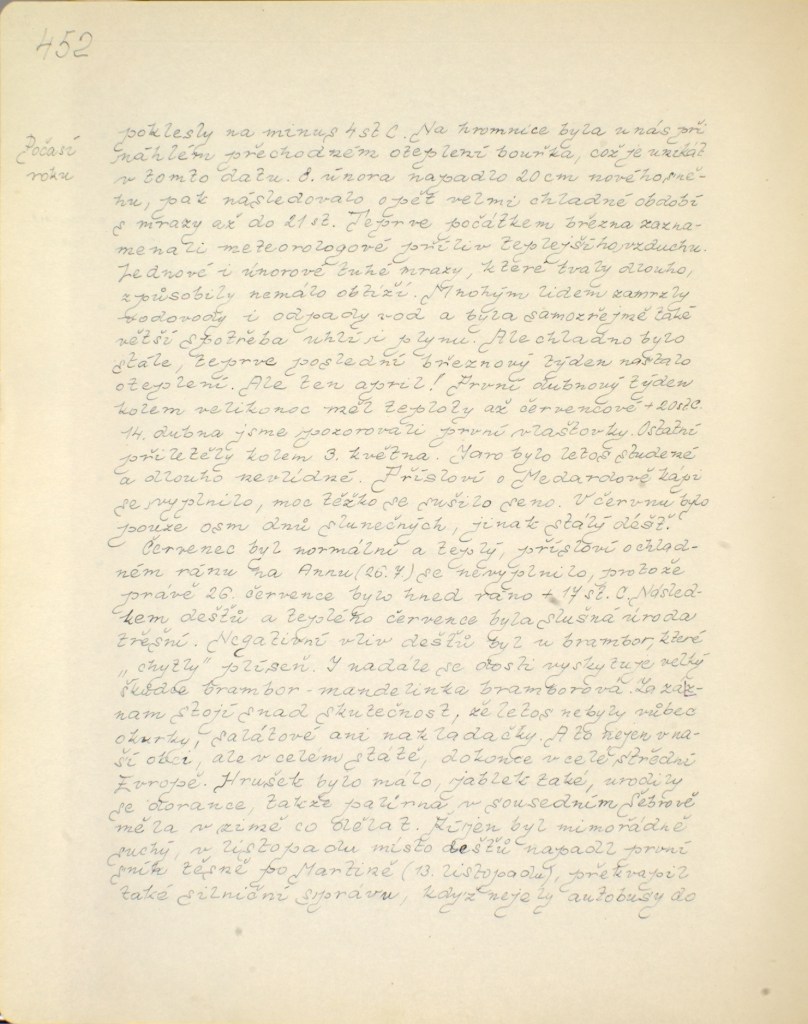 452
Počasí
roku
poklesly na minus 4 st C. Na hromnice byla u nás při
náhlém přechodném oteplení bouřka, což je unikát
v tomto datu. 8. února napadlo 20 cm nového sně-
hu, pak následovalo opět velmi chladné období
s mrazy až do 21 st. Teprve počátkem března zazna-
menali meteorologové příliv teplejšího vzduchu.
Lednové i únorové tuhé mrazy, které trvaly dlouho,
způsobily nemálo obtíží. Mnohým lidem zamrzly
vodovody i odpady vod a byla samozřejmě také
větší spotřeba uhlí i plynu. Ale chladno bylo
stále, teprve poslední březnový týden nastalo
oteplení. Ale ten april! První dubnový týden
kolem velikonoc měl teploty až červencové +20 st C.
14. dubna jsme pozorovali první vlaštovky. Ostatní
přiletěly kolem 3. května. Jaro bylo letos studené
a dlouho nevlídné. Přísloví o Medardově kápi
se vyplnilo, moc těžko se sušilo seno. V červnu bylo
pouze osm dnů slunečných, jinak stálý déšť!
Červenec byl normální a teplý, přísloví o chlad-
ném ránu na Annu (26.7.) se nevyplnilo, protože
právě 26. července bylo hned ráno +17 st. C. Násled-
kem dešťů a teplého července byla slušná úroda
třešní. Negativní vliv dešťů byl u brambor, které
"chytly" plíseň. I nadále se dosti vyskytuje velký
škůdce brambor - mandelinka bramborová. Za záz-
nam stojí snad skutečnost, že letos nebyly vůbec
okurky, salátové ani nakladačky. A to nejen v na-
ší obci, ale v celém státě, dokonce v celé střední
Evropě. Hrušek bylo málo, jablek také, urodily
se dorance, takže palírna v sousedním Šebrově
měla v zimě co dělat. Říjen byl mimořádně
suchý, v listopadu místo dešťů napadl první
sníh těsně po Martině (13. listopadu), překvapil
také silniční správu, když nejely autobusy do